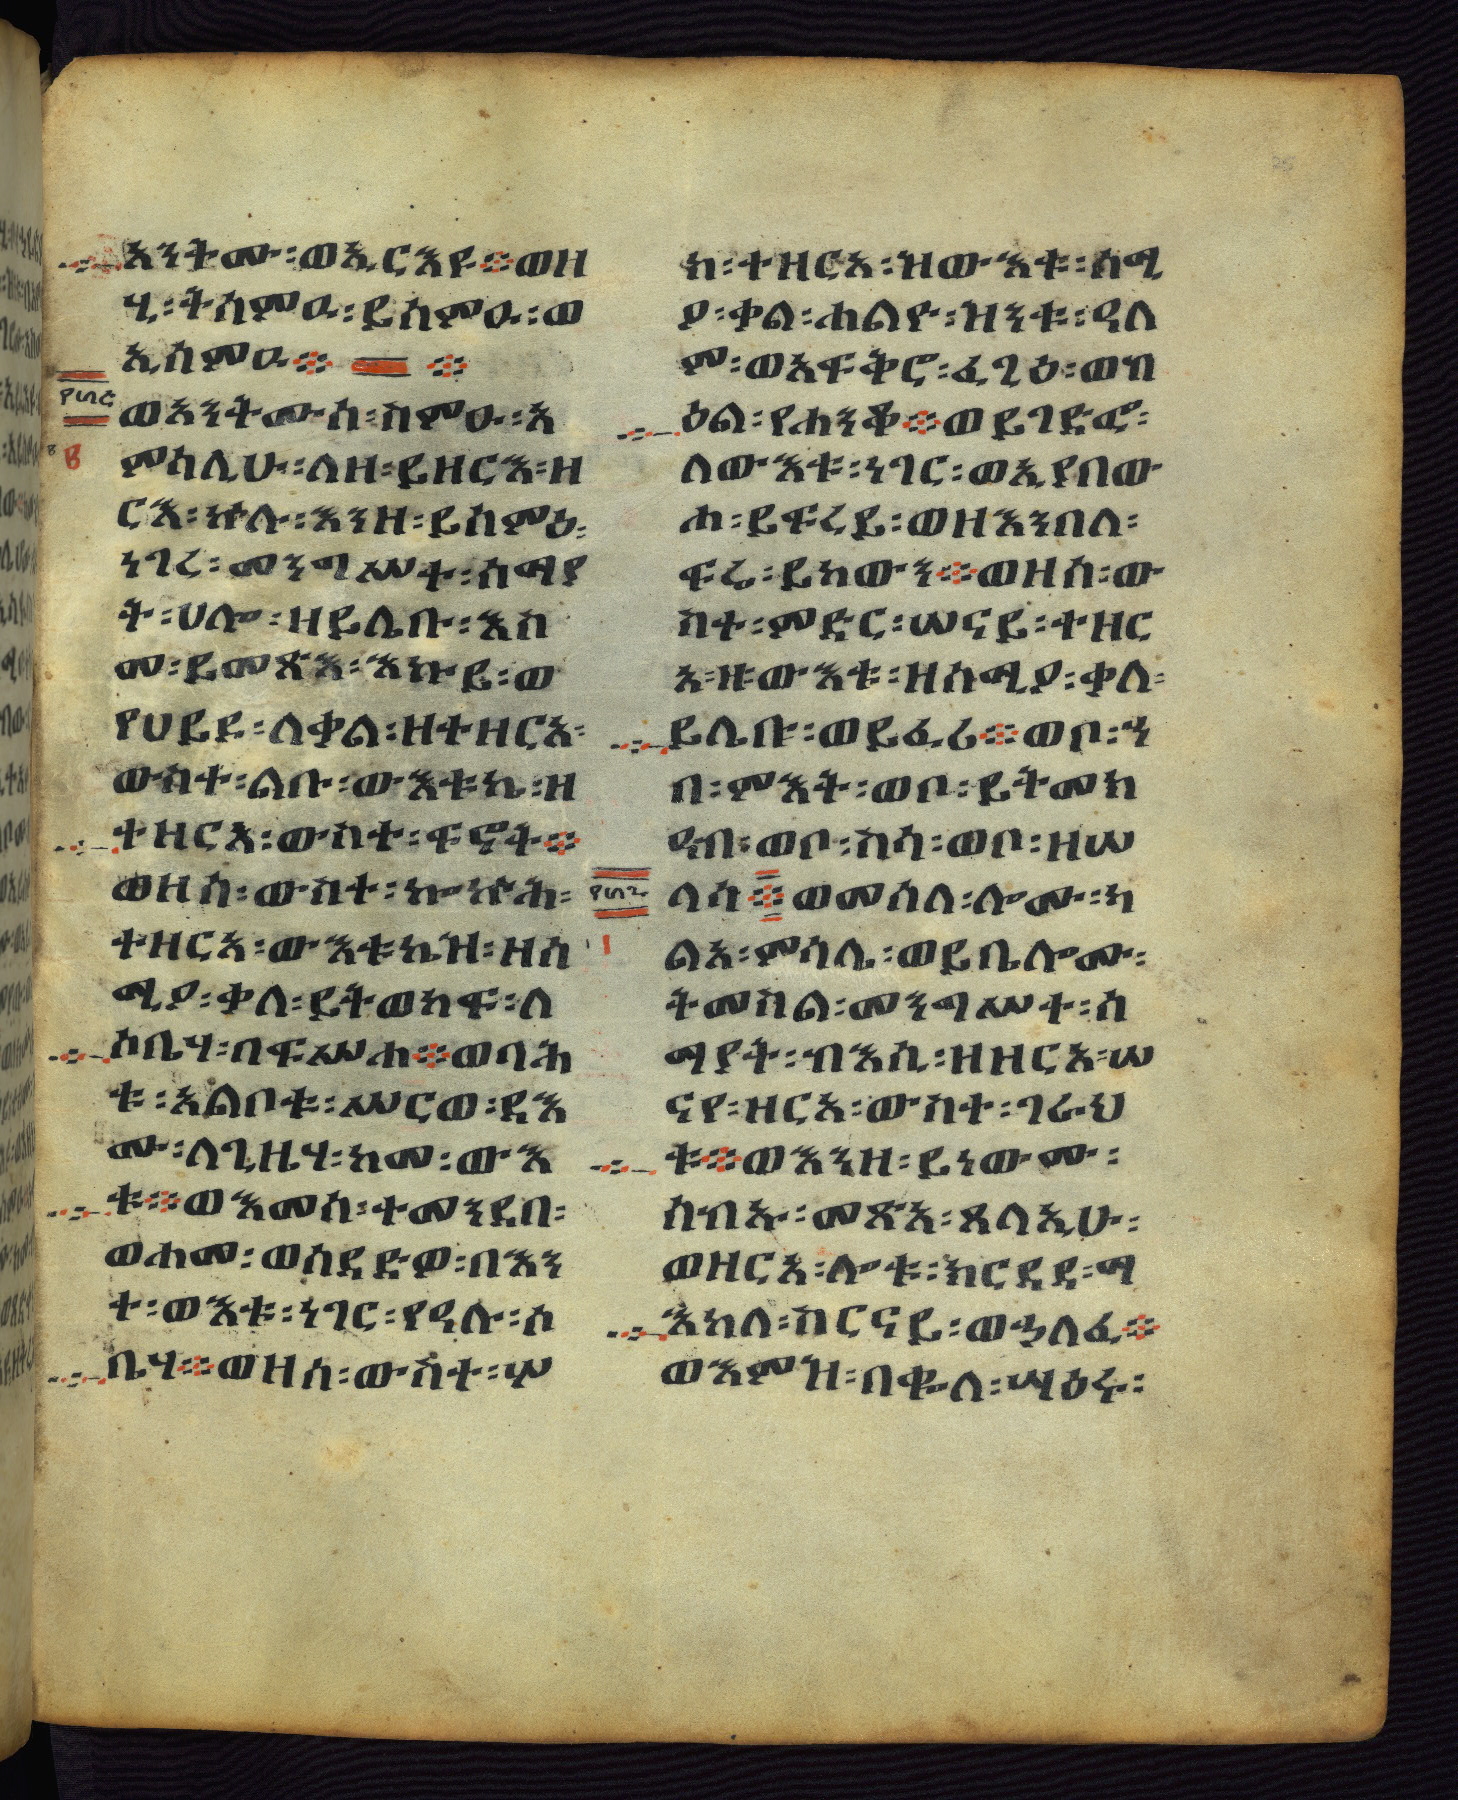 እንትሙ፡ወኢርእየ፨ወዘ
ሂ፡ትሰምዑ፡ይሰምዑ፡ወ
ኢሰምዑ፨ ፨
ወእንትሙሰ፡ስምዑ፡እ
ምሳሊሁ፡ለዘ፡ይዘርእ፡ዘ
ርእ፡ኵሉ፡እንዘ፡ይሰምዕ፡
ነገረ፡መንግሥተ፡ሰማያ
ት፡ሀሎ፡ዘይሌቡ፡እስ
መ፡ይመጽእ፡እኩይ፡ወ
የሀይድ፡ለቃል፡ዘተዘርአ፡
ውስተ፡ልቡ፡ውእቱኬ፡ዘ
ተዘርአ፡ውስተ፡ፍኖት፨
ወዘሰ፡ውስተ፡ኰኵሕ፡
ተዘርአ፡ውእቱኬዝ፡ዘሰ
ሚዖ፡ቃለ፡ይትወከፍ፡ለ
ሶቤሃ፡በፍሥሐ፨ወባሕ
ቱ፡አልቦቱ፡ሥርወ፡ዳእ
ሙ፡ለጊዜሃ፡ከመ፡ውእ
ቱ፨ወእመሰ፡ተመንደበ፡
ወሐመ፡ወሰደድዎ፡በእን
ተ፡ውእቱ፡ነገር፡የዓሉ፡ሶ
ቤሃ፨ወዘሰ፡ውስተ፡ሦ
ክ፡ተዘርአ፡ዝውእቱ፡ሰሚ
ዖ፡ቃል፡ሐልዮ፡ዝንቱ፡ዓለ
ም፡ወአፍቅሮ፡ፈጊዕ፡ወብ
ዕል፡የሐንቆ፨ወይገድፎ፡
ለውእቱ፡ነገር፡ወኢያበው
ሐ፡ይፍረይ፡ወዘእንበለ፡
ፍሬ፡ይከውን፨ወዘሰ፡ው
ስተ፡ምድር፡ሠናይ፡ተዘር
አ፡ዙ፡ውእቱ፡ዘሰሚዖ፡ቃለ፡
ይሌቡ፡ወይፈሪ፨ወቦ፡ኀ
በ፡ምእት፡ወቦ፡ይትመክ
ዓብ፡ወቦ፡ስሳ፡ወቦ፡ዘሠ
ላሳ፨ወመሰለ፡ሎሙ፡ካ
ልአ፡ምሳሌ፡ወይቤሎሙ፡
ትመስል፡መንግሥተ፡ሰ
ማያት፡ብእሲ፡ዘዘርአ፡ሠ
ናየ፡ዘርአ፡ውስተ፡ገራህ
ቱ፨ወእንዘ፡ይነውሙ፡
ሰብኡ፡መጽአ፡ጸላኢሁ፡
ወዘርአ፡ሎቱ፡ክርዳደ፡ማ
እከለ፡ስርናይ፡ወኀለፈ፨
ወእምዝ፡በቈለ፡ሣዕሩ፡